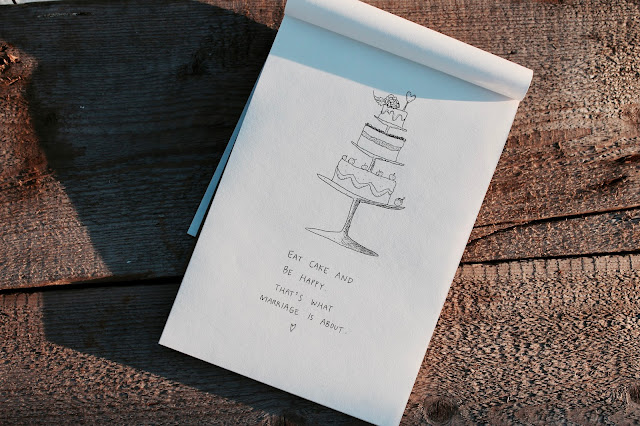 EAT CAKE AND
BE HAPPY.
THAT'S WHAT
MARRIAGE IS ABOUT.